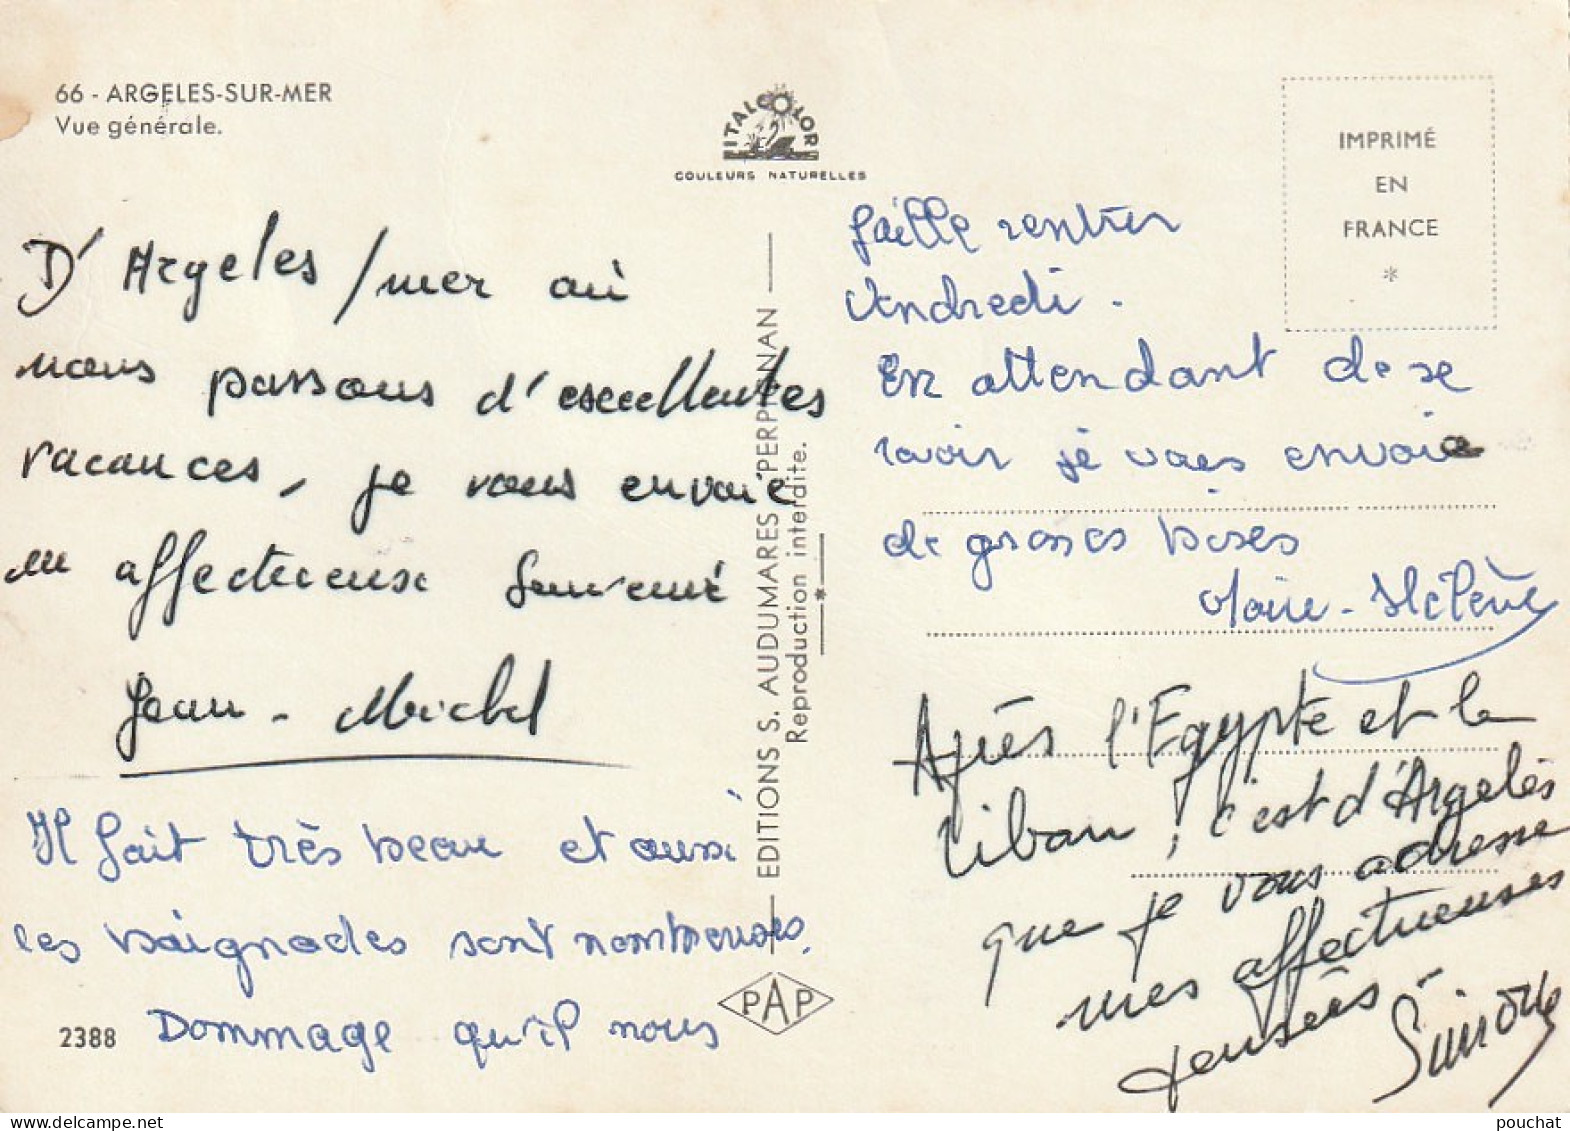 66 - ARGELES-SUR-MER
Vue générale.
ITALCOLOR
COULEURS NATURELLES
IMPRIMÉ
EN
FRANCE
*
D'Argeles/mer où
nous passons d'excellentes
vacances, je vous envoie
un affectueux souvenir
Jean-Michel
Il fait très beau et aussi
les baignades sont nombreuses.
Dommage qu'il nous
2388
EDITIONS S. AUDUMARES PERPIGNAN
Reproduction interdite.
*
PAP
faille rentrer
vendredi.
En attendant de se
revoir je vous envoie
de grosses bises
Marie-Hélène
Après l'Egypte et le
Liban, c'est d'Argelès
que je vous adresse
mes affectueuses
pensées -
Simone
pouchat